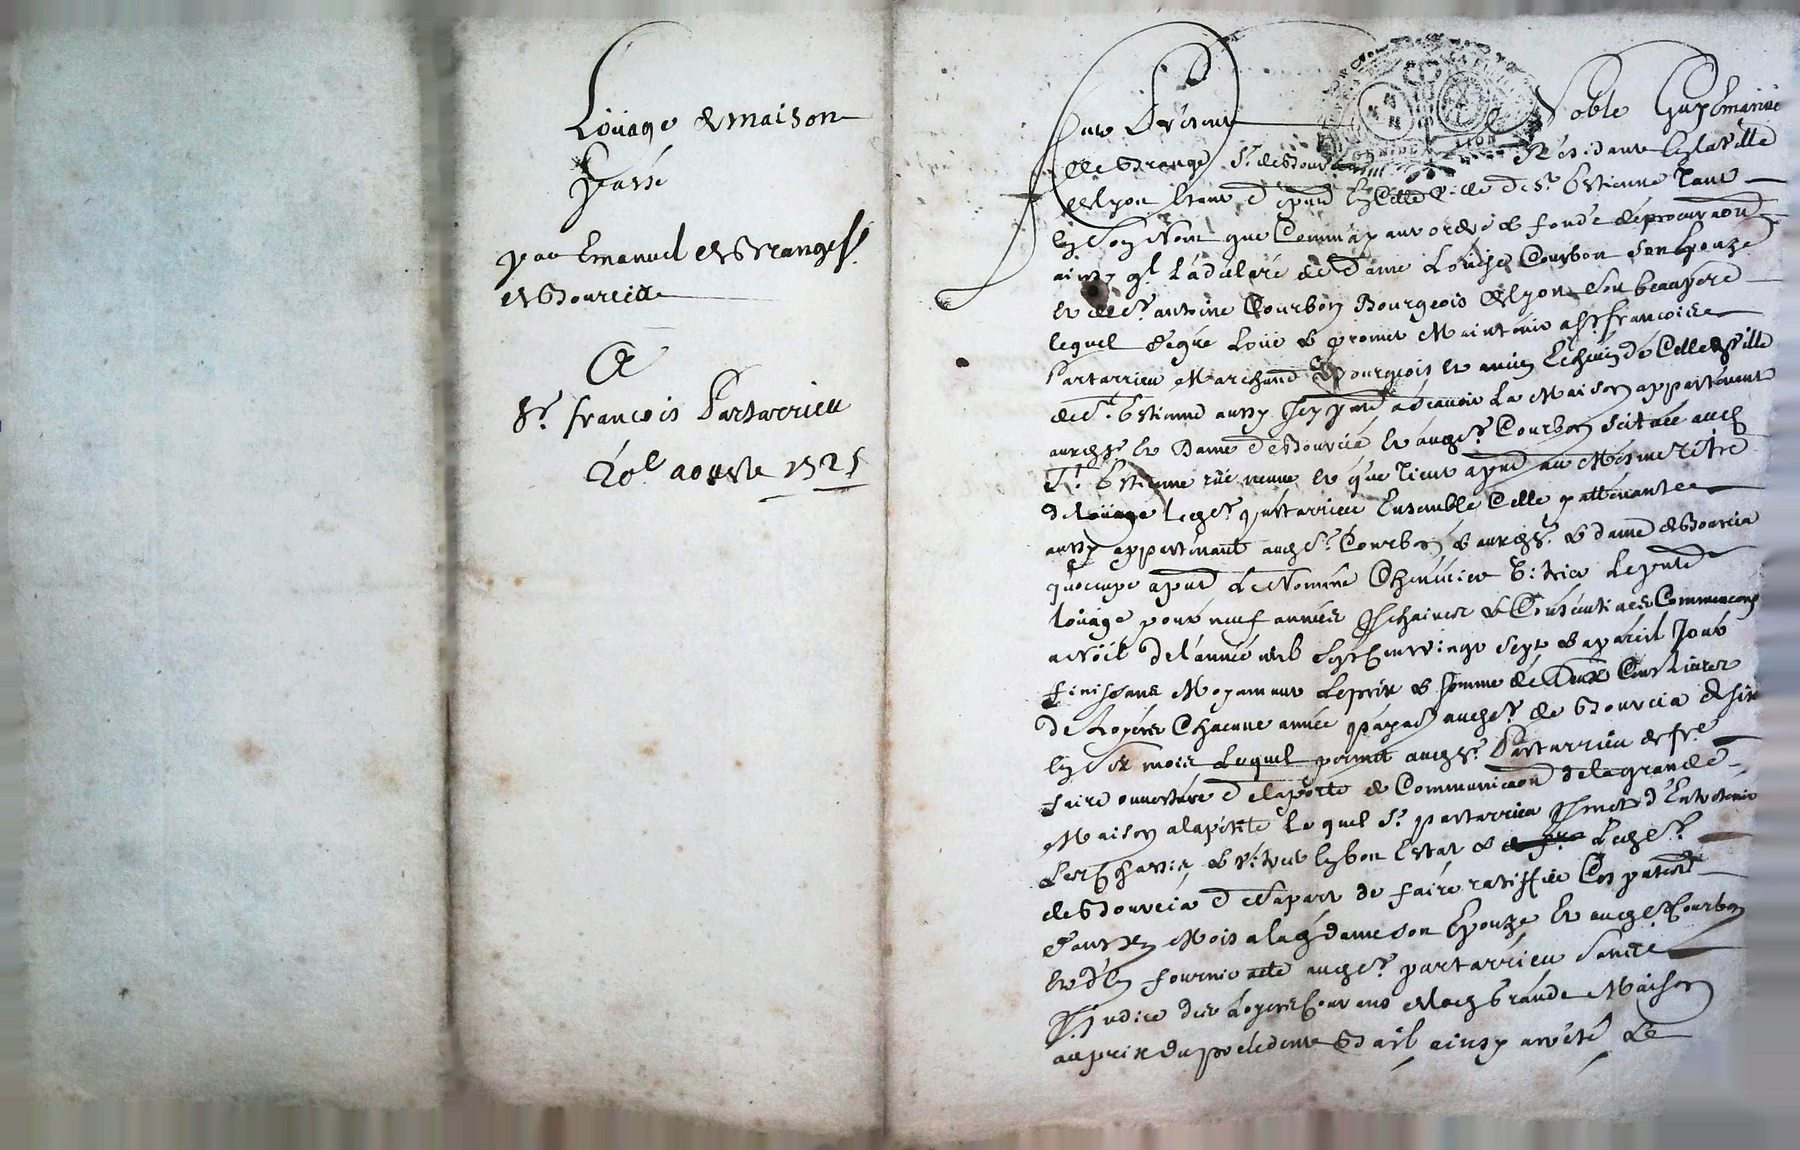 Loüage de maison
Passé
par Emanuel de Grange Sr
de Bourcia
A
Sr. francois Partarrieu
20e aouste 1725
Par devant Noble Guy Emanuel
de Grange Sr. de Bourcia Residant en la ville
de Lyon etant de pnt en Cette ville de St. Estienne tant
en son Nom que Comme ayant ordre & fondé de procuraon
ainsy ql a déclaré de dame Loüise Courbon son Epouze
et de Sr. antoine Courbon Bourgeois de Lyon son beaupere
lequel de gré Loüe & promet Maintenir a Sr. francoise
Partarrieu Marchand Bourgeois et antien Echevin de Cette ville
de St. Estienne aussy icy pnt a scavoir La Maison appartenant
auxds. Sr. et Dame de Bourcia et audt Sr. Courbon scituée aud
St. Estienne rüe neuve et que tient a pnt au Mesme titre
de loüage ledt Sr. partarrieu Ensemble Celle y attenante
aussy appartenant audt Sr. Courbon & auxds. Sr. & dame de Bourcia
qu'occupe a pnt Le Nommé Le pnt
loüage pour neuf années prochaines & Consecutives Commencant
a Noël de l'année mil sept cent vingt sept & a pareil Jour
finissans Moyenant Le prix & somme de Deux Cens Livres
de Loyers Chacune année payable audt Sr. de Bourcia de six
en six mois Lequel permet audt Sr. Partarrieu de fre
faire ouverture de la porte de Communicaon de la grande
Maison a la petite Lequel Sr. partarrieu promet d'Entretenir
Les Chassis & vitres en bon Estat & Ledt Sr.
de Bourcia de sa part de faire ratiffier Ces patentes
dans un Mois a lad dame son Epouze Et audt Sr. Courbon
et d'en fournir acte audt Sr. partarrieu sans
prejudice des Loyers Courans de lad Grande Maison
au prix du precedent Bail ainsy arreté Le